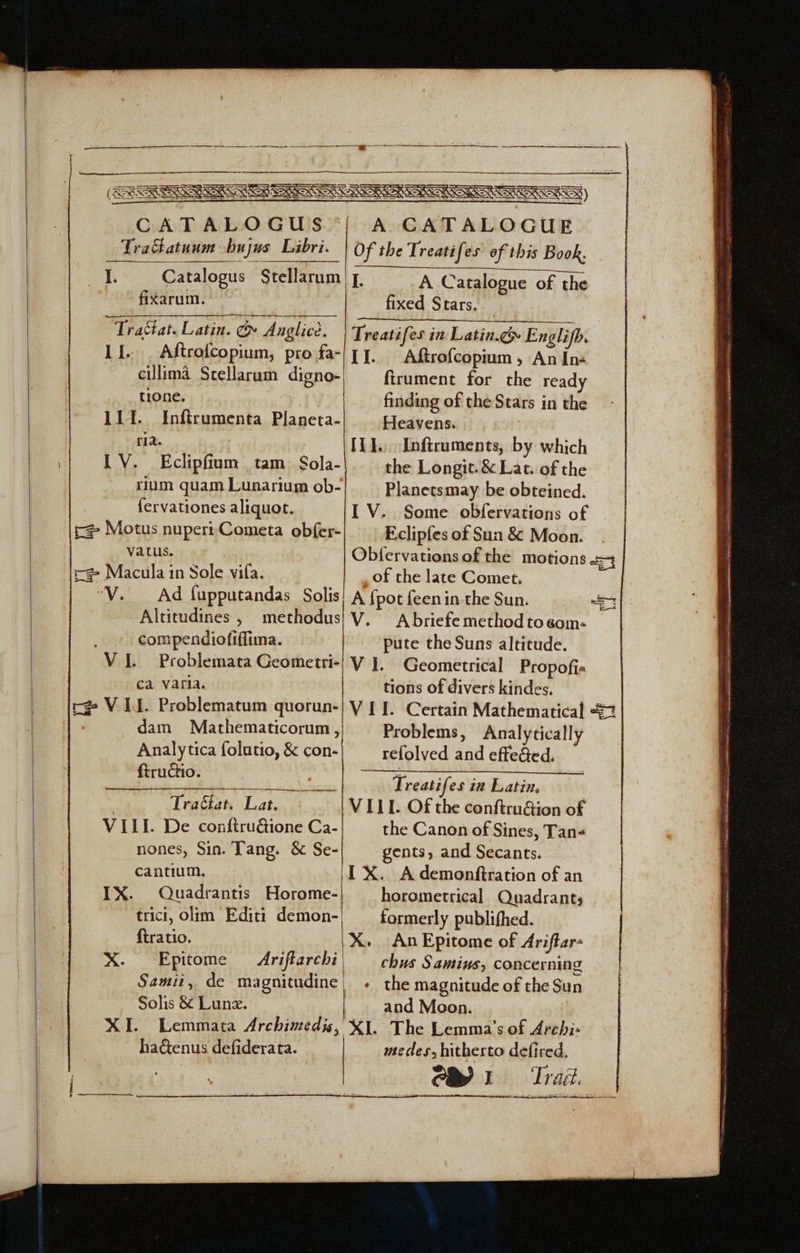 CATALOGUS
Tractatuum hujus Libri.
I. Catalogus Stellarum
fixarum.
Tractat. Latin. & Anglicè.
II. Astroscopium, pro fa-
cillimâ Stellarum digno-
tione.
III. Instrumenta Planeta-
ria.
IV. Eclipsium tam Sola-
rium quam Lunarium ob-
servationes aliquot.
☞ Motus nuperi Cometa obser-
vatus.
☞ Macula in Sole visa.
V. Ad supputandas Solis
Altitudines, methodus
compendiosissima.
VI. Problemata Geometri-
ca varia.
☞ VII. Problematum quorun-
dam Mathematicorum,
Analytica solutio, & con-
structio.
Tractat. Lat.
VIII. De constructione Ca-
nones, Sin. Tang. & Se-
cantium.
IX. Quadrantis Horome-
trici, olim Editi demon-
stratio.
X. Epitome Aristarchi
Samii, de magnitudine
Solis & Lunæ.
XI. Lemmata Archimedis,
hactenus desiderata.
A CATALOGUE
Of the Treatises of this Book.
I. A Catalogue of the
fixed Stars.
Treatises in Latin.& English.
II. Astroscopium, An In-
strument for the ready
finding of the Stars in the
Heavens.
III. Instruments, by which
the Longit. & Lat. of the
Planets may be obteined.
IV. Some observations of
Eclipses of Sun & Moon.
Observations of the motions ☜
of the late Comet.
A spot seen in the Sun. ☜
V. A briefe method to com-
pute the Suns altitude.
VI. Geometrical Proposi-
tions of divers kindes.
VII. Certain Mathematical ☜
Problems, Analytically
resolved and effected.
Treatises in Latin.
VIII. Of the construction of
the Canon of Sines, Tan-
gents, and Secants.
IX. A demonstration of an
horometrical Quadrant,
formerly published.
X. An Epitome of Aristar-
chus Samius, concerning
the magnitude of the Sun
and Moon.
XI. The Lemma's of Archi-
medes, hitherto desired.
1 Tract.